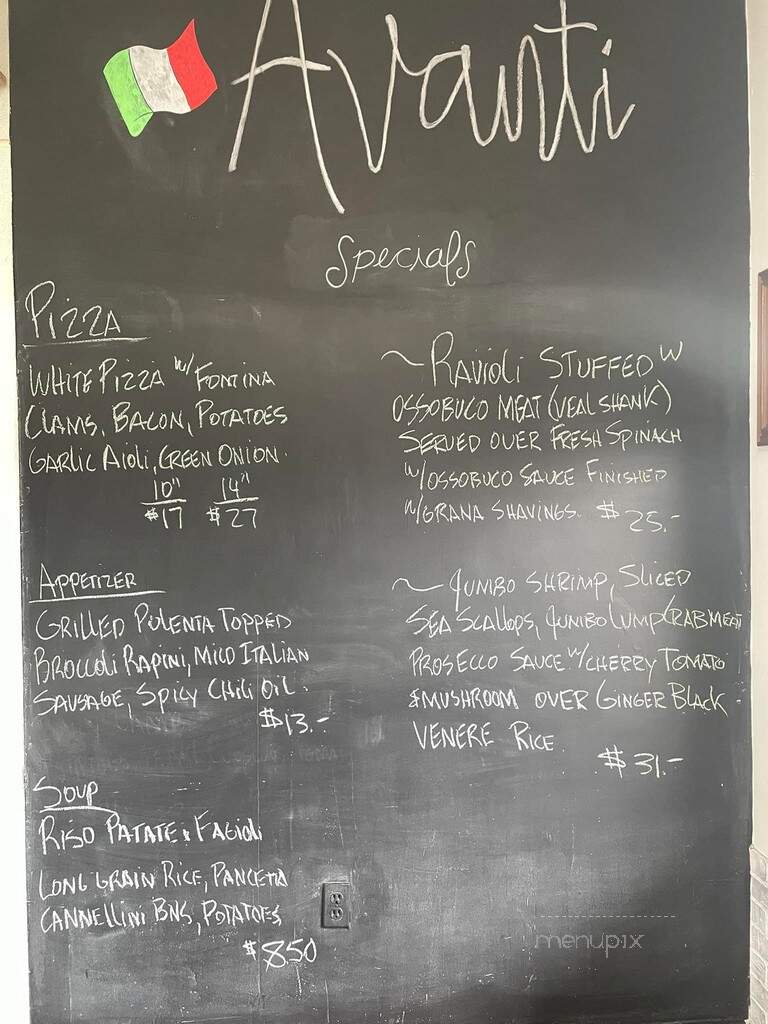 Avanti
Specials
PIZZA
WHITE PIZZA W/ FONTINA
CLAMS, BACON, POTATOES
GARLIC AIOLI, GREEN ONION.
10" 14"
$17 $27
APPETIZER
GRILLED POLENTA TOPPED
BROCCOLI RAPINI, MILD ITALIAN
SAUSAGE, SPICY CHILI OIL.
$13.-
SOUP
RISO PATATE & FAGIOLI
LONG GRAIN RICE, PANCETTA
CANNELLINI BNS, POTATOES
$8.50
~ RAVIOLI STUFFED W
OSSOBUCO MEAT (VEAL SHANK)
SERVED OVER FRESH SPINACH
W/OSSOBUCO SAUCE FINISHED
W/GRANA SHAVINGS. $25.-
~ JUMBO SHRIMP, SLICED
SEA SCALLOPS, JUMBO LUMP CRABMEAT
PROSECCO SAUCE W/CHERRY TOMATO
& MUSHROOM OVER GINGER BLACK
VENERE RICE.
$31.-
menupix